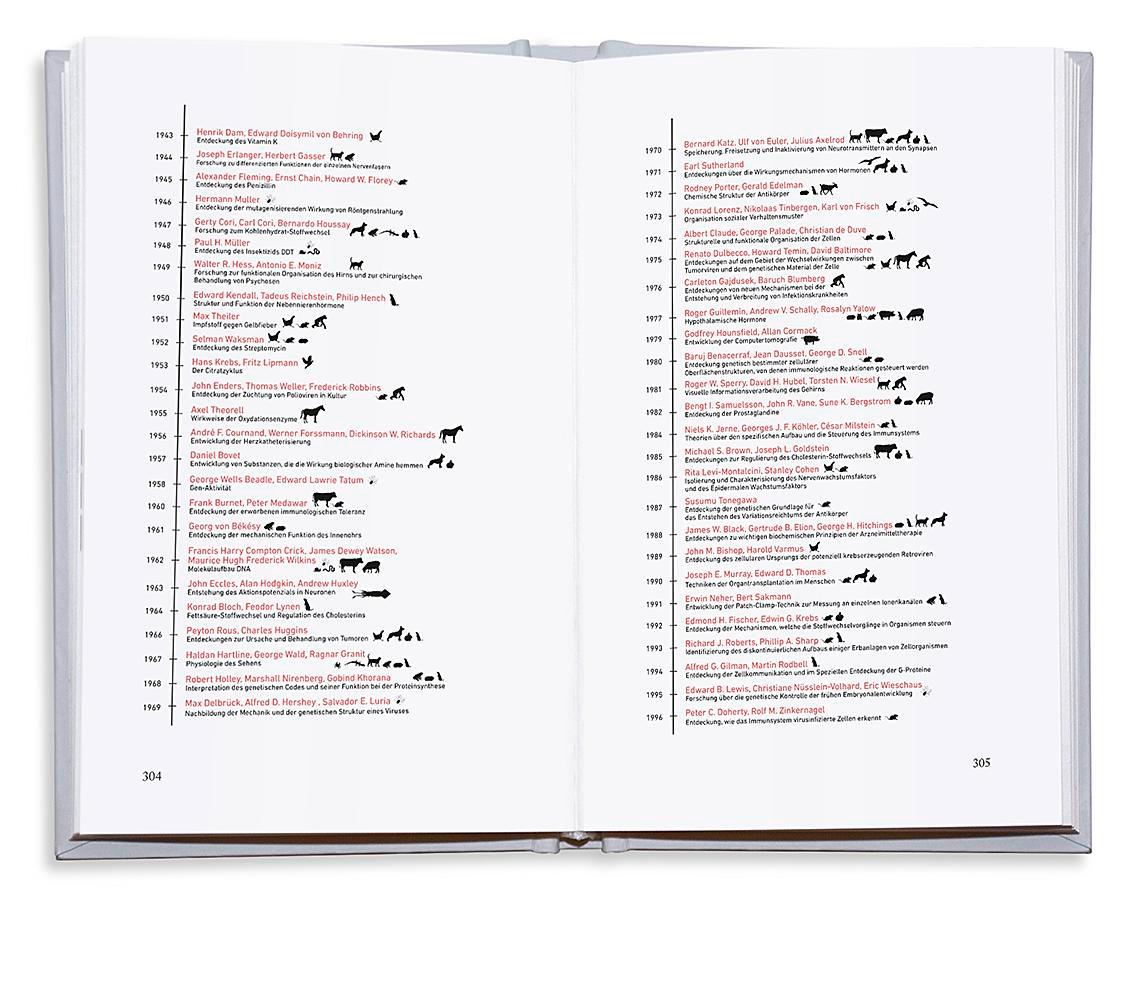 1943
Henrik Dam, Edward Doisymil von Behring
Entdeckung des Vitamin K
1944
Joseph Erlanger, Herbert Gasser
Forschung zu differenzierten Funktionen der einzelnen Nervenfasern
1945
Alexander Fleming, Ernst Chain, Howard W. Florey
Entdeckung des Penizillin
1946
Hermann Muller
Entdeckung der mutagenisierenden Wirkung von Röntgenstrahlung
1947
Gerty Cori, Carl Cori, Bernardo Houssay
Forschung zum Kohlenhydrat-Stoffwechsel
1948
Paul H. Müller
Entdeckung des Insektizids DDT
1949
Walter R. Hess, Antonio E. Moniz
Forschung zur funktionalen Organisation des Hirns und zur chirurgischen
Behandlung von Psychosen
1950
Edward Kendall, Tadeus Reichstein, Philip Hench
Struktur und Funktion der Nebennierenhormone
1951
Max Theiler
Impfstoff gegen Gelbfieber
1952
Selman Waksman
Entdeckung des Streptomycin
1953
Hans Krebs, Fritz Lipmann
Der Citratzyklus
1954
John Enders, Thomas Weller, Frederick Robbins
Entdeckung der Züchtung von Polioviren in Kultur
1955
Axel Theorell
Wirkweise der Oxydationsenzyme
1956
André F. Cournand, Werner Forssmann, Dickinson W. Richards
Entwicklung der Herzkatheterisierung
1957
Daniel Bovet
Entwicklung von Substanzen, die die Wirkung biologischer Amine hemmen
1958
George Wells Beadle, Edward Lawrie Tatum
Gen-Aktivität
1960
Frank Burnet, Peter Medawar
Entdeckung der erworbenen immunologischen Toleranz
1961
Georg von Békésy
Entdeckung der mechanischen Funktion des Innenohrs
1962
Francis Harry Compton Crick, James Dewey Watson,
Maurice Hugh Frederick Wilkins
Molekülaufbau DNA
1963
John Eccles, Alan Hodgkin, Andrew Huxley
Entstehung des Aktionspotenzials in Neuronen
1964
Konrad Bloch, Feodor Lynen
Fettsäure-Stoffwechsel und Regulation des Cholesterins
1966
Peyton Rous, Charles Huggins
Entdeckungen zur Ursache und Behandlung von Tumoren
1967
Haldan Hartline, George Wald, Ragnar Granit
Physiologie des Sehens
1968
Robert Holley, Marshall Nirenberg, Gobind Khorana
Interpretation des genetischen Codes und seiner Funktion bei der Proteinsynthese
1969
Max Delbrück, Alfred D. Hershey , Salvador E. Luria
Nachbildung der Mechanik und der genetischen Struktur eines Viruses
304
1970
Bernard Katz, Ulf von Euler, Julius Axelrod
Speicherung, Freisetzung und Inaktivierung von Neurotransmittern an den Synapsen
1971
Earl Sutherland
Entdeckungen über die Wirkungsmechanismen von Hormonen
1972
Rodney Porter, Gerald Edelman
Chemische Struktur der Antikörper
1973
Konrad Lorenz, Nikolaas Tinbergen, Karl von Frisch
Organisation sozialer Verhaltensmuster
1974
Albert Claude, George Palade, Christian de Duve
Strukturelle und funktionale Organisation der Zellen
1975
Renato Dulbecco, Howard Temin, David Baltimore
Entdeckungen auf dem Gebiet der Wechselwirkungen zwischen
Tumorviren und dem genetischen Material der Zelle
1976
Carleton Gajdusek, Baruch Blumberg
Entdeckungen von neuen Mechanismen bei der
Entstehung und Verbreitung von Infektionskrankheiten
1977
Roger Guillemin, Andrew V. Schally, Rosalyn Yalow
Hypothalamische Hormone
1979
Godfrey Hounsfield, Allan Cormack
Entwicklung der Computertomografie
1980
Baruj Benacerraf, Jean Dausset, George D. Snell
Entdeckung genetisch bestimmter zellulärer
Oberflächenstrukturen, von denen immunologische Reaktionen gesteuert werden
1981
Roger W. Sperry, David H. Hubel, Torsten N. Wiesel
Visuelle Informationsverarbeitung des Gehirns
1982
Bengt I. Samuelsson, John R. Vane, Sune K. Bergstrom
Entdeckung der Prostaglandine
1984
Niels K. Jerne, Georges J. F. Köhler, César Milstein
Theorien über den spezifischen Aufbau und die Steuerung des Immunsystems
1985
Michael S. Brown, Joseph L. Goldstein
Entdeckungen zur Regulierung des Cholesterin-Stoffwechsels
1986
Rita Levi-Montalcini, Stanley Cohen
Isolierung und Charakterisierung des Nervenwachstumsfaktors
und des Epidermalen Wachstumsfaktors
1987
Susumu Tonegawa
Entdeckung der genetischen Grundlage für
das Entstehen des Variationsreichtums der Antikörper
1988
James W. Black, Gertrude B. Elion, George H. Hitchings
Entdeckungen zu wichtigen biochemischen Prinzipien der Arzneimitteltherapie
1989
John M. Bishop, Harold Varmus
Entdeckung des zellularen Ursprungs der potenziell krebserzeugenden Retroviren
1990
Joseph E. Murray, Edward D. Thomas
Techniken der Organtransplantation im Menschen
1991
Erwin Neher, Bert Sakmann
Entwicklung der Patch-Clamp-Technik zur Messung an einzelnen Ionenkanälen
1992
Edmond H. Fischer, Edwin G. Krebs
Entdeckung der Mechanismen, welche die Stoffwechselvorgänge in Organismen steuern
1993
Richard J. Roberts, Phillip A. Sharp
Identifizierung des diskontinuierlichen Aufbaus einiger Erbanlagen von Zellorganismen
1994
Alfred G. Gilman, Martin Rodbell
Entdeckung der Zellkommunikation und im Speziellen Entdeckung der G-Proteine
1995
Edward B. Lewis, Christiane Nüsslein-Volhard, Eric Wieschaus
Forschung über die genetische Kontrolle der frühen Embryonalentwicklung
1996
Peter C. Doherty, Rolf M. Zinkernagel
Entdeckung, wie das Immunsystem virusinfizierte Zellen erkennt
305